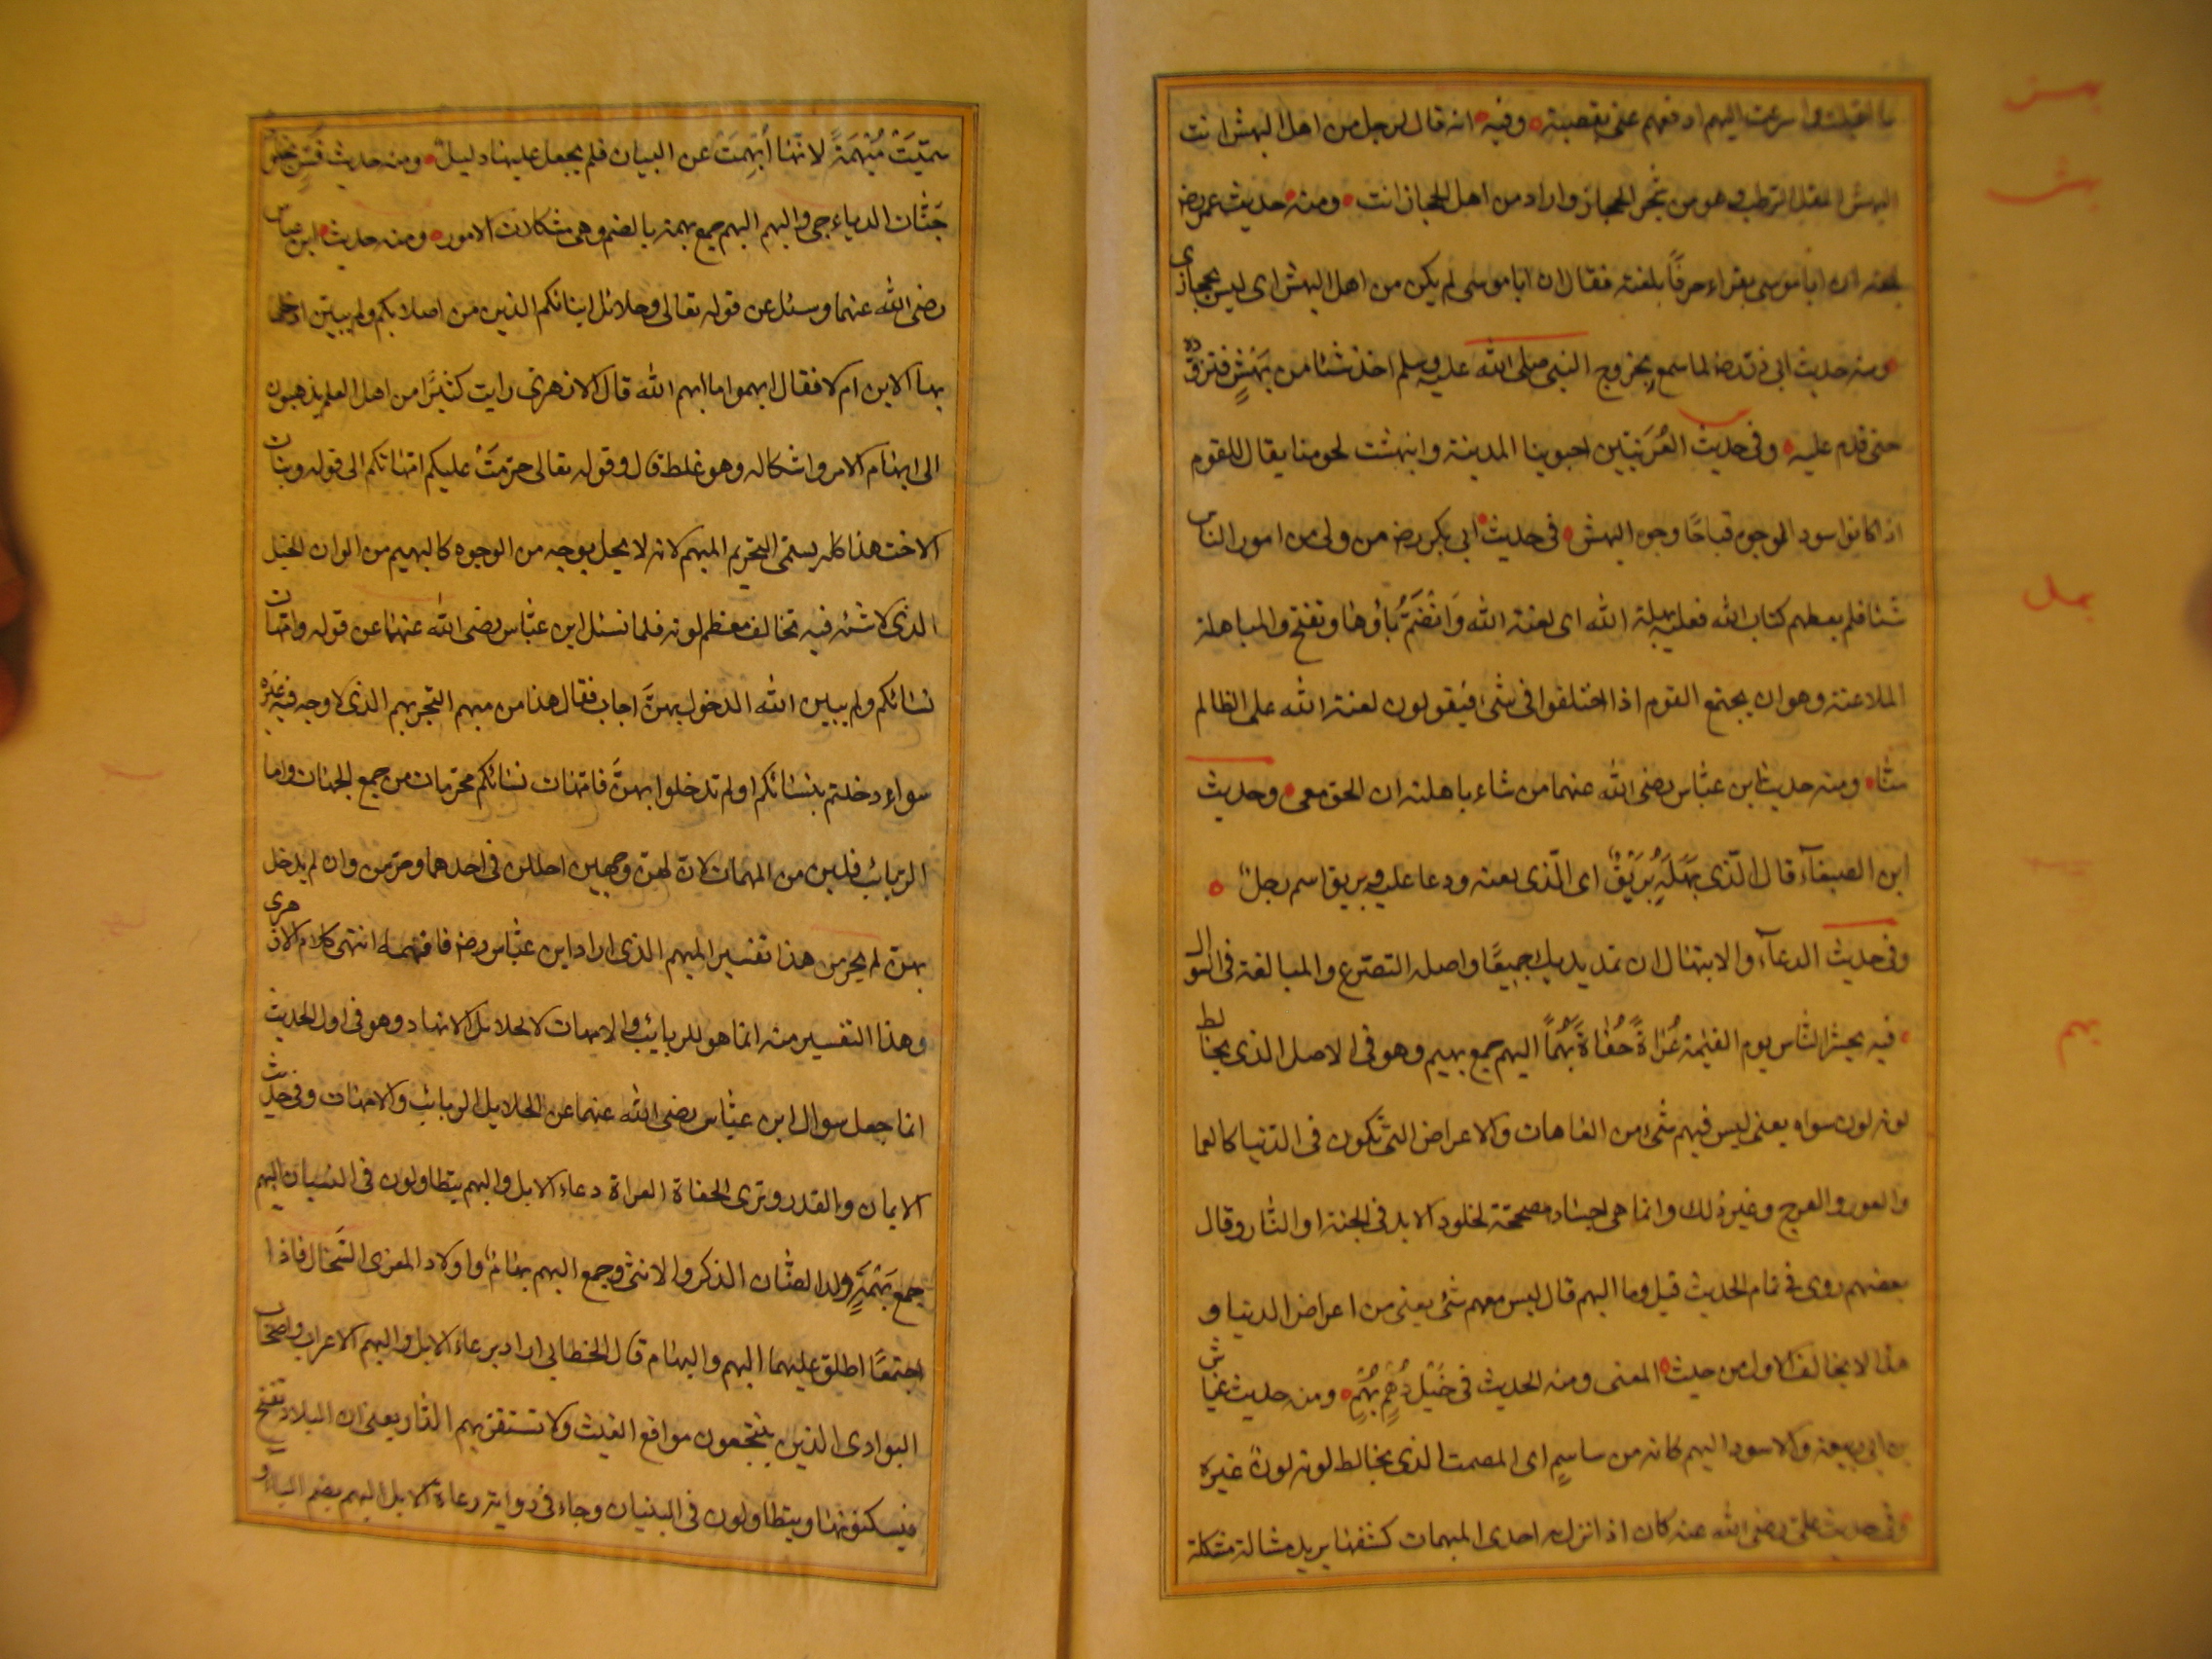 ما اقبلت واسرعت اليهم ادفعهم عني بقصبة وفيه انه قال لرجل من اهل البهش انت
البهش المقل الرطب وهو من شجر الحجاز واراد من اهل الحجاز انت ومنه حديث عمر رضه
بلغه ان ابا موسى يقراء حرفاً بلغته فقال ان ابا موسى لم يكن من اهل البهش اى ليس بحجازى
ومنه حديث ابي ذر رضه لما سمع بخروج النبي صلى الله عليه وسلم اخذ شيئا من بَهْشٍ فتزوده
حتى قدم عليه وفى حديث العُرَنيّين اجتوينا المدينة وانبهشت لحومنا يقال للقوم
اذا كانوا سود الوجوه قباحًا وجوه البهش فى حديث ابي بكر رضه من ولى من امور الناس
شيئا فلم يعطهم كتاب الله فعليه بهلة الله اى لعنة الله وَتُضَمُّ بَاؤها وتفتح والمباهلة
الملاعنة وهو ان يجتمع القوم اذا اختلفوا فى شئ فيقولون لعنة الله على الظالم
منّا ومنه حديث ابن عبّاس رضى الله عنهما من شاء باهلته ان الحق معى وحديث
ابن الصبغآء قال الّذى بَهَلَهُ بُرَيْقٌ اى الّذى لعنه ودعا عليه وبريق اسم رجل
وفى حديث الدعآء والابتهال ان تمد يديك جميعًا واصله التضرع والمبالغة فى السوال
فيه يحشر الناس يوم القيمة عُرَاةً حُفَاةً بُهْمًا البهم جمع بهيم وهو فى الاصل الذى يخالط
لونه لون سواه يعنى ليس فيهم شئ من العاهات والاعراض التى تكون فى الدّنيا كالعما
والعور والعرج وغير ذلك وانما هى اجساد مصححة لخلود الابد فى الجنة او النار وقال
بعضهم روى فى تمام الحديث قيل وما البهم قال ليس معهم شئ يعنى من اعراض الدنيا و
هذا لا يخالف الاول من حيث المعنى ومنه الحديث فى خَيْل دُهْمٍ بُهْمٍ ومنه حديث عياش
بن ابي ربيعة والاسود البهيم كانه من ساسم اى المصمت الذى يخالط لونه لون غيره
وفى حديث على رضى الله عنه كان اذا نزل به احدى المبهمات كشفها يريد مسالة مشكلة
سمّيت مُبْهَمَةً لانّها أُبْهِمَتْ عن البيان فلم يجعل عليها دليل ومنه حديث قس
الدياجى والبهم البهم جمع بهمة بالضم وهى مشكلات الامور ومنه حديث ابن عباس
رضى الله عنهما وسئل عن قوله تعالى وحلائل ابنائكم الذين من اصلابكم ولم يبين ادخل
بها الابن ام لا فقال ابهموا ما ابهم الله قال الازهرى رايت كثيرًا من اهل العلم يذهبون
الى ابهام الامر واشكاله وهو غلط قال وقوله تعالى حرّمَتْ عليكم امّهاتكم الى قوله وبنات
الاخت هذا كله يسمّى التحريم المبهم لانه لا يحل بوجه من الوجوه كالبهيم من الوان الخيل
الذى لا شية فيه تخالف معظم لونه فلما سئل ابن عبّاس رضى الله عنهما عن قوله وامّهات
نسائكم ولم يبين الله الدخول بهنّ اجاب فقال هذا من مبهم التحريم الذى لا وجه فيه غيره
سواء دخلتم بنسائكم او لم تدخلوا بهنّ فامّهات نسائكم محرّمات من جميع الجهات واما
الربائب فليس من المبهمات لان لهن وجهين احللن فى احدهما وحرّمن وان لم يدخل
بهن لم يحرمن هذا تفسير المبهم الذى اراد ابن عبّاس رضه فافهمه انتهى كلام الازهرى
وهذا التفسير منه انما هو للربايب والامهات لا لحلائل الابناء وهو فى اول الحديث
انما جعل سوال ابن عبّاس رضى الله عنهما عن الحلايل لا الربائب والامّهات وفى حديث
الايمان والقدر وترى الحفاة العراة رعاء الابل والبهم يتطاولون فى البنيان البهم
جمع بَهْمَةٍ ولد الضّان الذكر والانثى وجمع البهم بهام واولاد المعزى السّخال فاذا
اجتمعا اطلق عليهما البهم والبهام قال الخطابى اراد برعاء الابل والبهم الاعراب واصحاب
البوادى الذين ينتجعون مواقع الغيث ولا تستقر بهم الدّار يعنى ان البلاد تفتح
فيسكنونها ويتطاولون فى البنيان وجاء فى رواية رعاة الابل البهم بضم الباء و
بهش
بهش
بهل
بهم